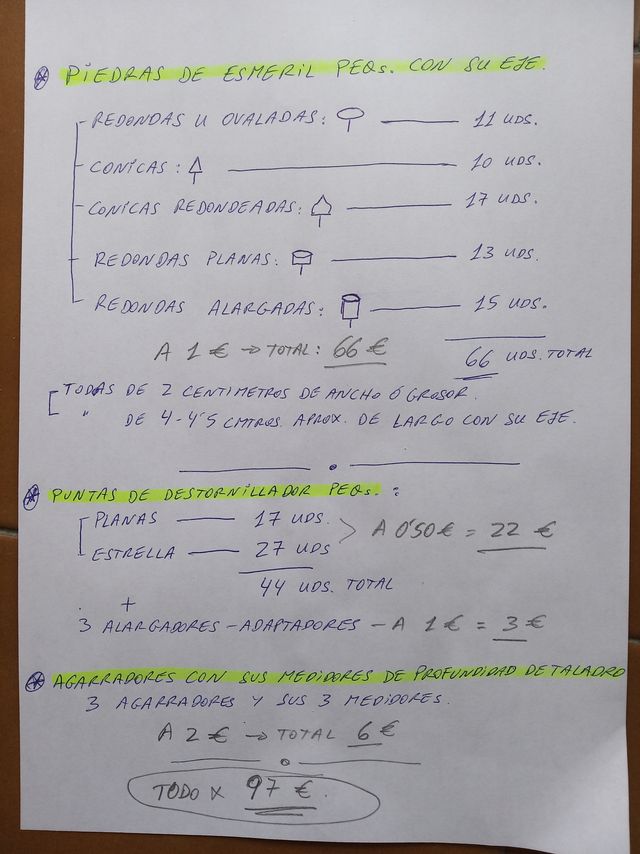 * PIEDRAS DE ESMERIL PEQs. CON SU EJE.
REDONDAS U OVALADAS: 11 UDS.
CONICAS: 10 UDS.
CONICAS REDONDEADAS: 17 UDS.
REDONDAS PLANAS: 13 UDS.
REDONDAS ALARGADAS: 15 UDS.
A 1 € → TOTAL: 66 € 66 UDS. TOTAL
[TODAS DE 2 CENTIMETROS DE ANCHO Ó GROSOR.
" DE 4-4'5 CMTROS. APROX. DE LARGO CON SU EJE.
* PUNTAS DE DESTORNILLADOR PEQs. :
PLANAS — 17 UDS.
ESTRELLA — 27 UDS > A 0'50 € = 22 €
44 UDS. TOTAL
+
3 ALARGADORES - ADAPTADORES - A 1 € = 3 €
* AGARRADORES CON SUS MEDIDORES DE PROFUNDIDAD DE TALADRO
3 AGARRADORES Y SUS 3 MEDIDORES.
A 2 € → TOTAL 6 €
TODO X 97 €.